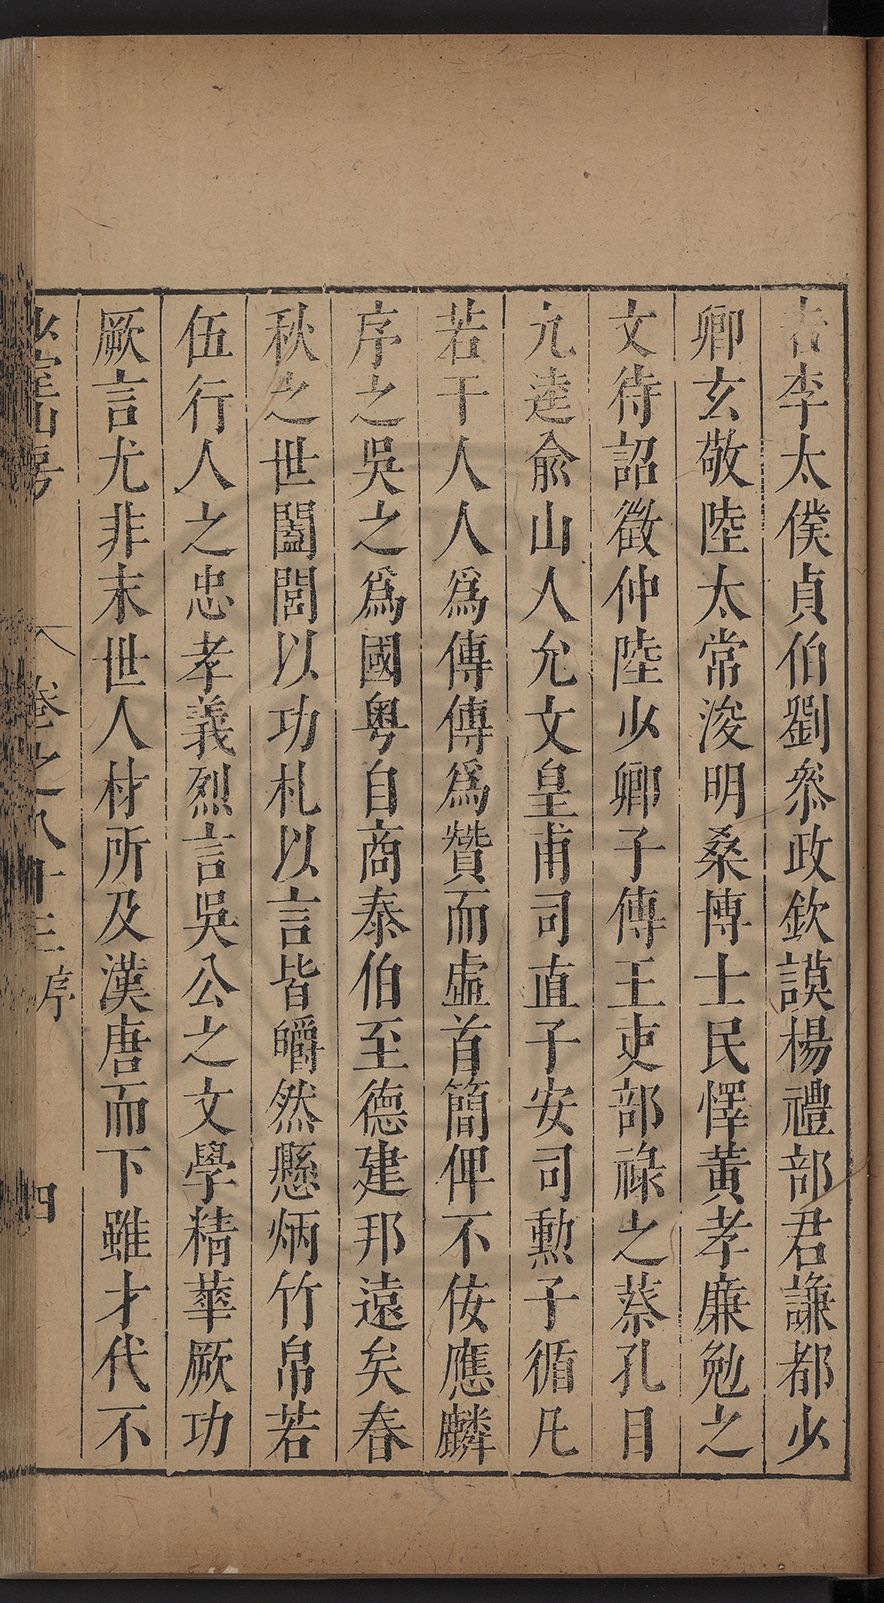 者李太僕貞伯劉叅政欽謨楊禮部君謙都少
卿玄敬陸太常浚明桑博士民懌黃孝廉勉之
文待詔徵仲陸少卿子傳王吏部祿之蔡孔目
九逵兪山人允文皇甫司直子安司勲子循凡
若干人人爲傳傳爲贊而虛首簡俾不佞應麟
序之吳之爲國粵自商泰伯至德建邦遠矣春
秋之世闔閭以功札以言皆皭然懸炳竹帛若
伍行人之忠孝義烈言吳公之文學精華厥功
厥言尤非末世人材所及漢唐而下雖才代不
少室山房 卷之八十三 序 四